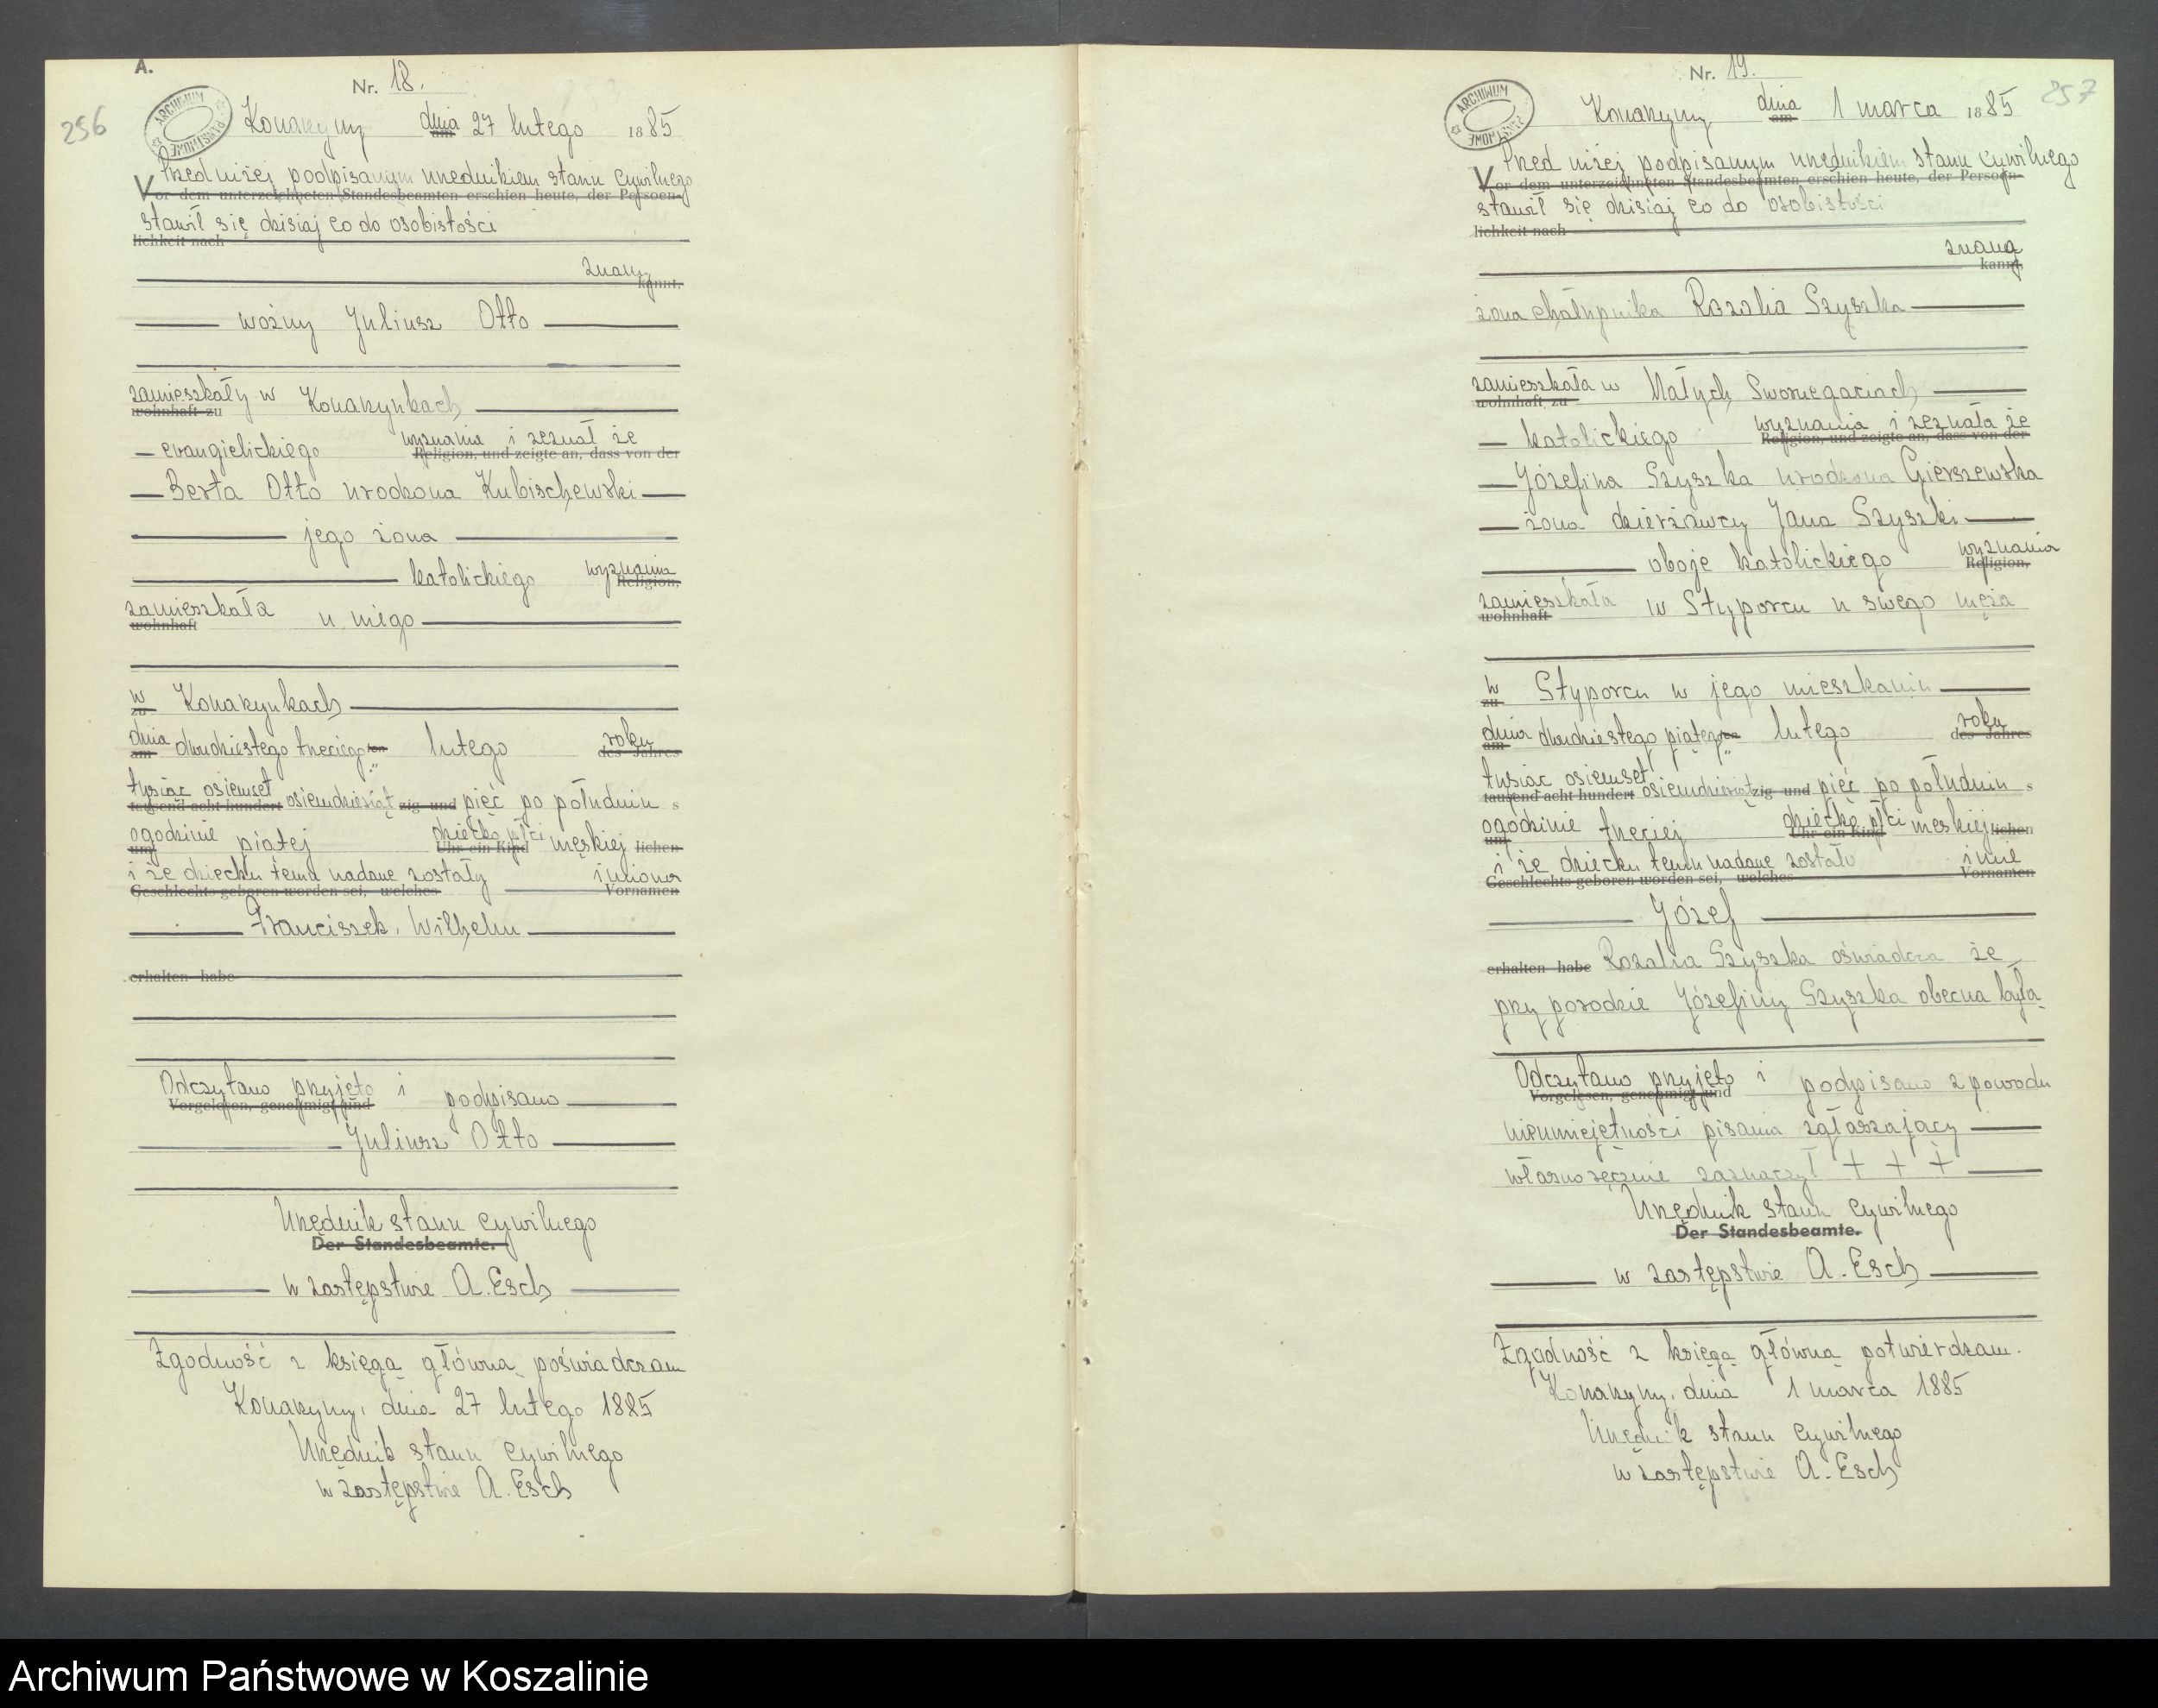 A.
Nr. 18.
256
ARCHIWUM PAŃSTWOWE
Konarzyny dnia am 27 lutego 1885
Przed niżej podpisanym urzędnikiem stanu cywilnego
Vor dem unterzeichneten Standesbeamten erschien heute, der Persoen-
stawił się dzisiaj co do osobistości
lichkeit nach
znany
kannt,
woźny Juliusz Otto
zamieszkały w Konarzynkach
wohnhaft zu
wyznania i zeznał że
evangielickiego Religion, und zeigte an, dass von der
Berta Otto urodzona Kubischewski
jego żona
katolickiego wyznania
Religion,
zamieszkała u niego
wohnhaft
w Konarzynkach
zu
dnia dwudziestego trzeciego ten lutego roku
am des Jahres
tysiąc osiemset
tausend acht hundert osiemdziesiąt zig und pięć po południu s
ogodzinie piątej dziecko płci męskiej lichen
um Uhr ein Kind
i że dziecku temu nadane zostały imiona
Geschlechts geboren worden sei, welches Vornamen
Franciszek, Wilhelm
erhalten habe
Odczytano przyjęto i podpisano
Vorgelesen, genehmigt und
Juliusz Otto
Urzędnik stanu cywilnego
Der Standesbeamte.
w zastępstwie A. Esch
Zgodność z księgą główną poświadczam
Konarzyny, dnia 27 lutego 1885
Urzędnik stanu cywilnego
w zastępstwie A. Esch
Nr. 19.
257
ARCHIWUM PAŃSTWOWE
Konarzyny dnia am 1 marca 1885
Przed niżej podpisanym urzędnikiem stanu cywilnego
Vor dem unterzeichneten Standesbeamten erschien heute, der Persoen-
stawił się dzisiaj co do osobistości
lichkeit nach
znaną
kannt,
żona chałupnika Rozalia Szyszka
zamieszkała w Małych Swornegaciach
wohnhaft zu
wyznania i zeznała że
katolickiego Religion, und zeigte an, dass von der
Józefina Szyszka urodzona Gierszewska
żona dzierżawcy Jana Szyszki
oboje katolickiego wyznania
Religion,
zamieszkała w Styporcu u swego męża
wohnhaft
w Styporcu w jego mieszkaniu
zu
dnia dwudziestego piątego ten lutego roku
am des Jahres
tysiąc osiemset
tausend acht hundert osiemdziesiąt zig und pięć po południu s
ogodzinie trzeciej dziecko płci męskiej lichen
um Uhr ein Kind
i że dziecku temu nadane zostało imię
Geschlechts geboren worden sei, welches Vornamen
Józef
erhalten habe Rozalia Szyszka oświadcza że
przy porodzie Józefiny Szyszka obecna była
Odczytano przyjęto i podpisano z powodu
Vorgelesen, genehmigt und
nieumiejętności pisania zgłaszający
własnoręcznie zaznaczył + + +
Urzędnik stanu cywilnego
Der Standesbeamte.
w zastępstwie A. Esch
Zgodność z księgą główną potwierdzam.
Konarzyny, dnia 1 marca 1885
Urzędnik stanu cywilnego
w zastępstwie A. Esch
Archiwum Państwowe w Koszalinie